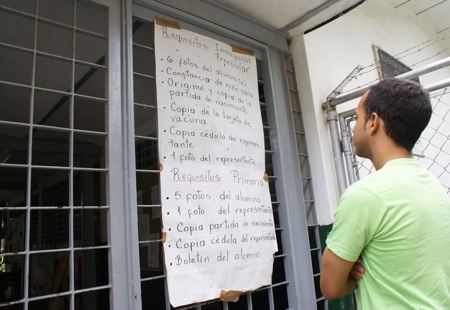 Requisitos Inscripción
Preescolar
• 6 fotos del alumno(a)
• Constancia de niño sano
• Original y copia de la
partida de nacimiento
• Copia de la tarjeta de
vacuna
• Copia cédula del represen
tante
• 1 foto del representante
Requisitos Primaria
• 5 fotos del alumno
• 1 foto del representante
• Copia partida de nacimiento
• Copia cédula del representan
• Boletín del alumno